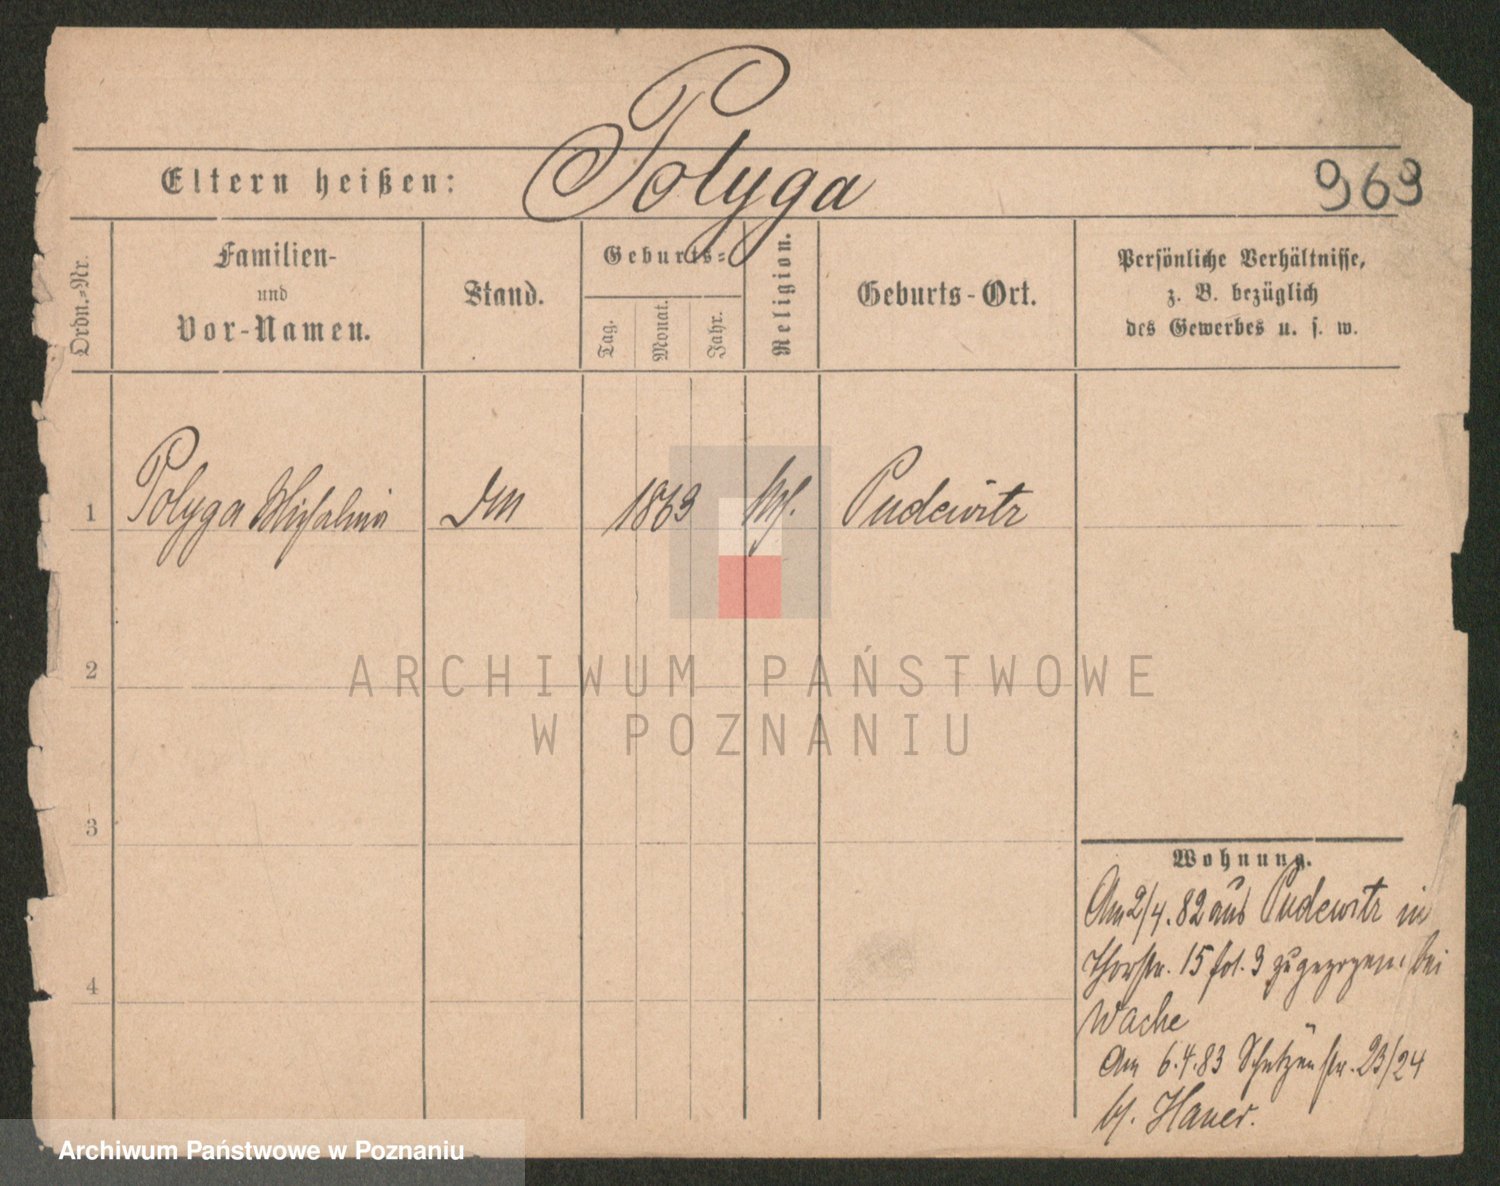 Polyga
Eltern heißen:
969
Ordn.-Nr.
Familien-
und
Vor-Namen.
Stand.
Geburts-
Tag.
Monat.
Jahr.
Religion.
Geburts-Ort.
Persönliche Verhältnisse,
z. B. bezüglich
des Gewerbes u. s. w.
1 Polyga Michalina 1869 Pudewitz
2
3
4
Wohnung.
Am 2/4. 82 aus Pudewitz in
Thorstr. 15 fol. 3 zugezogen. bei
Wache
Am 6.4.83 Schützenstr. 23/24
b/. Hauer.
ARCHIWUM PAŃSTWOWE
W POZNANIU
Archiwum Państwowe w Poznaniu